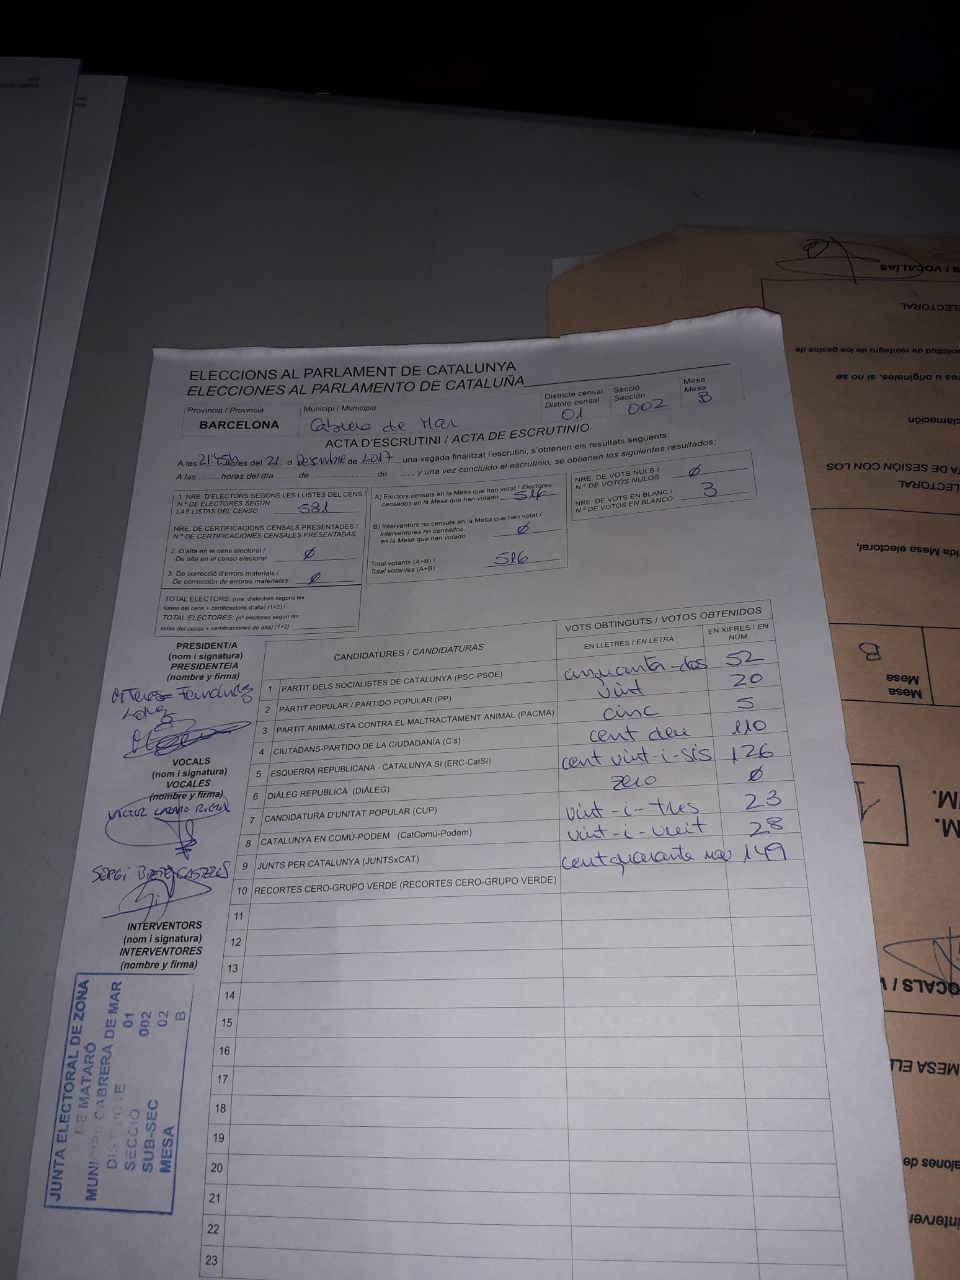 ELECCIONS AL PARLAMENT DE CATALUNYA
ELECCIONES AL PARLAMENTO DE CATALUÑA
Província / Provincia
BARCELONA
Municipi / Municipio
Cabrera de Mar
Districte censal
Distrito censal
01
Secció
Sección
002
Mesa
Mesa
B
ACTA D'ESCRUTINI / ACTA DE ESCRUTINIO
A les 21:45h hores del 21 d Desembre de 2017, una vegada finalitzat l'escrutini, s'obtenen els resultats següents:
A las ......... horas del día ......... de .................. de ........., y una vez concluido el escrutinio, se obtienen los siguientes resultados:
1. NRE. D'ELECTORS SEGONS LES LLISTES DEL CENS /
N.º DE ELECTORES SEGÚN
LAS LISTAS DEL CENSO
581
NRE. DE CERTIFICACIONS CENSALS PRESENTADES /
N.º DE CERTIFICACIONES CENSALES PRESENTADAS
2. D'alta en el cens electoral /
De alta en el censo electoral:
Ø
3. De correcció d'errors materials /
De corrección de errores materiales:
Ø
TOTAL ELECTORS: (nre. d'electors segons les
llistes del cens + certificacions d'alta) (1+2) /
TOTAL ELECTORES: (nº electores según las
listas del censo + certificaciones de alta) (1+2)
A) Electors censats en la Mesa que han votat / Electores
censados en la Mesa que han votado
516
B) Interventors no censats en la Mesa que han votat /
Interventores no censados
en la Mesa que han votado
Ø
Total votants (A+B) /
Total votantes (A+B)
516
NRE. DE VOTS NULS /
N.º DE VOTOS NULOS
Ø
NRE. DE VOTS EN BLANC /
N.º DE VOTOS EN BLANCO
3
PRESIDENT/A
(nom i signatura)
PRESIDENTE/A
(nombre y firma)
VOCALS
(nom i signatura)
VOCALES
(nombre y firma)
INTERVENTORS
(nom i signatura)
INTERVENTORES
(nombre y firma)
CANDIDATURES / CANDIDATURAS
VOTS OBTINGUTS / VOTOS OBTENIDOS
EN LLETRES / EN LETRA
EN XIFRES / EN NÚM.
1 PARTIT DELS SOCIALISTES DE CATALUNYA (PSC-PSOE) cinquanta-dos 52
2 PARTIT POPULAR / PARTIDO POPULAR (PP) vint 20
3 PARTIT ANIMALISTA CONTRA EL MALTRACTAMENT ANIMAL (PACMA) cinc 5
4 CIUTADANS-PARTIDO DE LA CIUDADANÍA (C's) cent deu 110
5 ESQUERRA REPUBLICANA - CATALUNYA SÍ (ERC-CatSí) cent vint-i-sis 126
6 DIÀLEG REPUBLICÀ (DIÀLEG) zero Ø
7 CANDIDATURA D'UNITAT POPULAR (CUP) vint-i-tres 23
8 CATALUNYA EN COMÚ-PODEM (CatComú-Podem) vint-i-vuit 28
9 JUNTS PER CATALUNYA (JUNTSxCAT) cent quaranta nou 149
10 RECORTES CERO-GRUPO VERDE (RECORTES CERO-GRUPO VERDE)
11
12
13
14
15
16
17
18
19
20
21
22
23
JUNTA ELECTORAL DE ZONA
DE MATARÓ
MUNICIPI CABRERA DE MAR
DISTRICTE 01
SECCIÓ 002
SUB-SEC 02
MESA B
/ VOCALÍAS
ELECTORAL
solicitud de reintegro de los gastos de
res u originales, si no se
clamación
TA DE SESIÓN CON LOS
ELECTORAL
da Mesa electoral,
Mesa
Mesa
B
1
M.
OCALS /
MESA